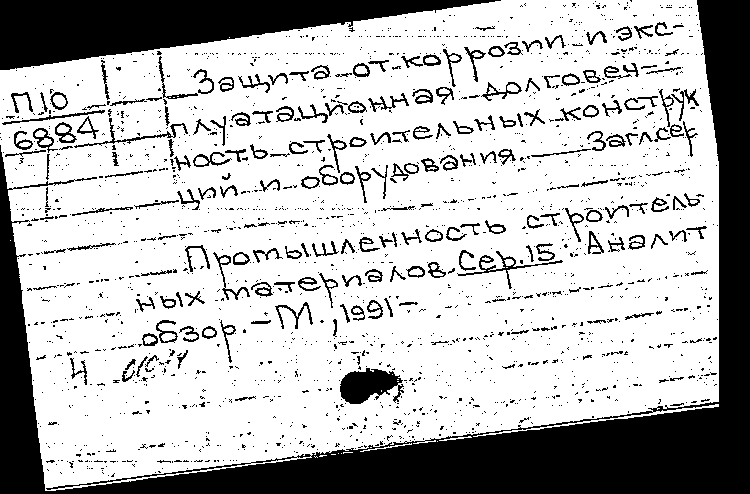 П10
6884
Защита от коррозии и экс-
плуатационная долговеч-
ность строительных конструк
ций и оборудования. Загл.сер
Промышленность строитель
ных материалов. Сер.15: Аналит
обзор. - М., 1991 -
Ч